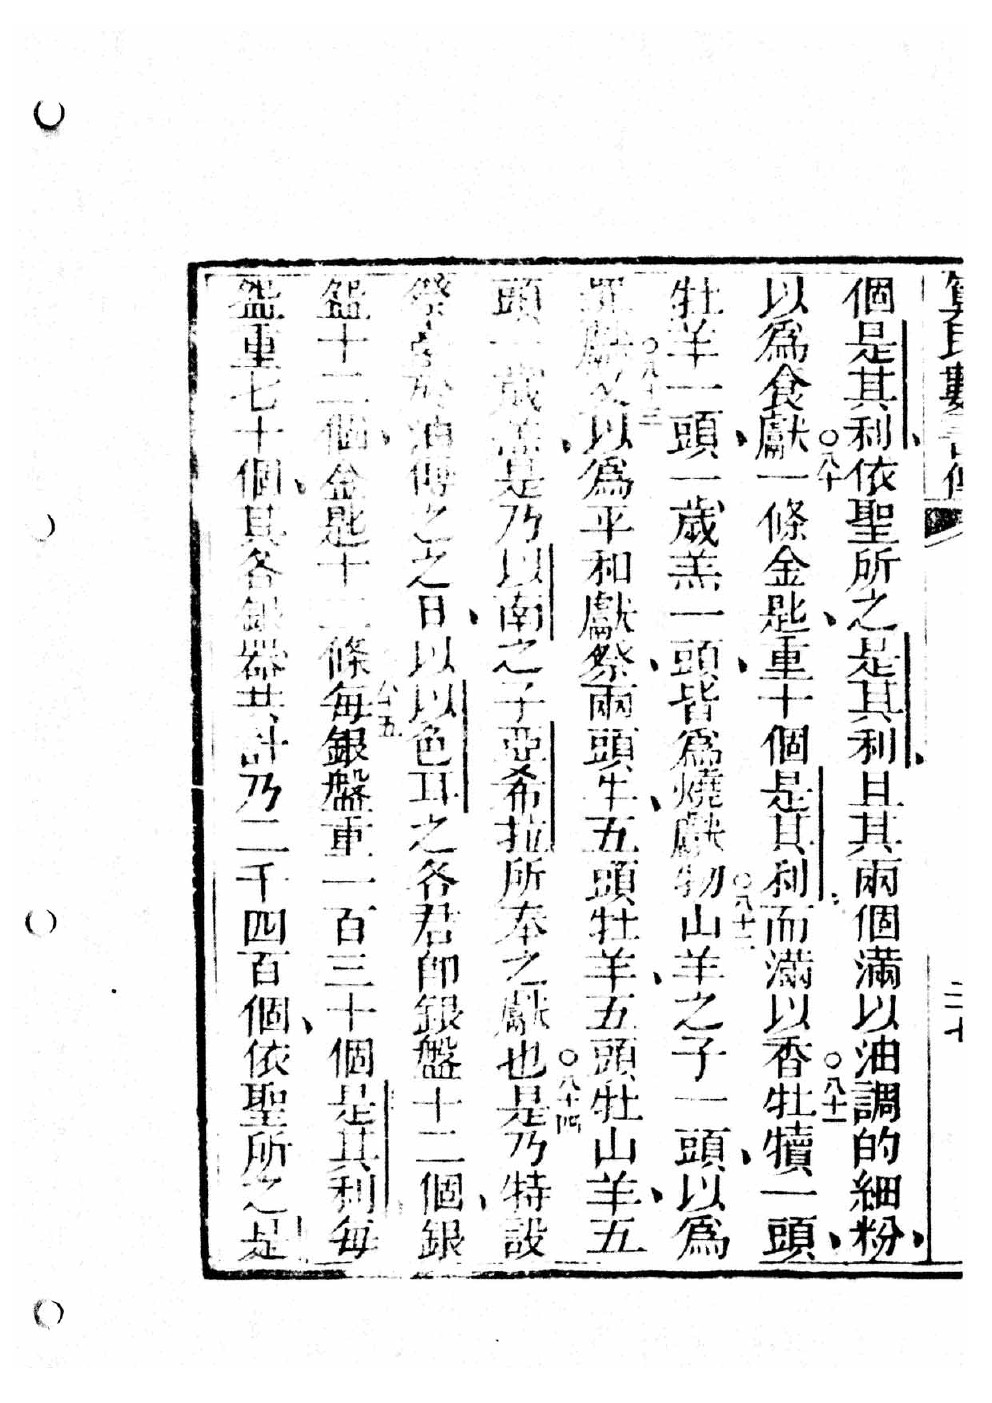 算民數書傳
二十
個是其利、依聖所之是其利、且其兩個滿以油調的細粉、
以爲食獻○八十一條金匙、重十個是其利而滿以香○八十一牡犢一頭、
牡羊一頭、一歲羔一頭、皆爲燒獻物○八十二山羊之子一頭、以爲
罪獻○八十三又以爲平和獻祭、兩頭牛、五頭牡羊、五頭牡山羊、五
頭一歲羔、是乃以南之子亞希拉所奉之獻也○八十四是乃特設
祭臺於油傅之之日、以以色耳之各君師銀盤十二個、銀
盌十二個、金匙十二條八十五每銀盤重一百三十個是其利每
盌重七十個、其各銀器共計乃二千四百個、依聖所之是